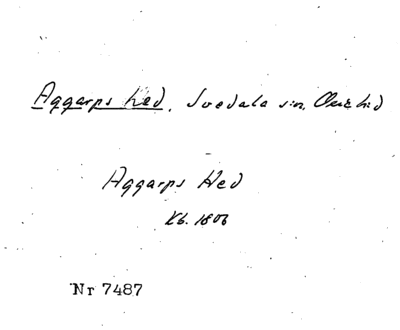 Aggarps hed, Svedala sn, Oxie hd
Aggarps Hed
Kb. 1806
Nr 7487